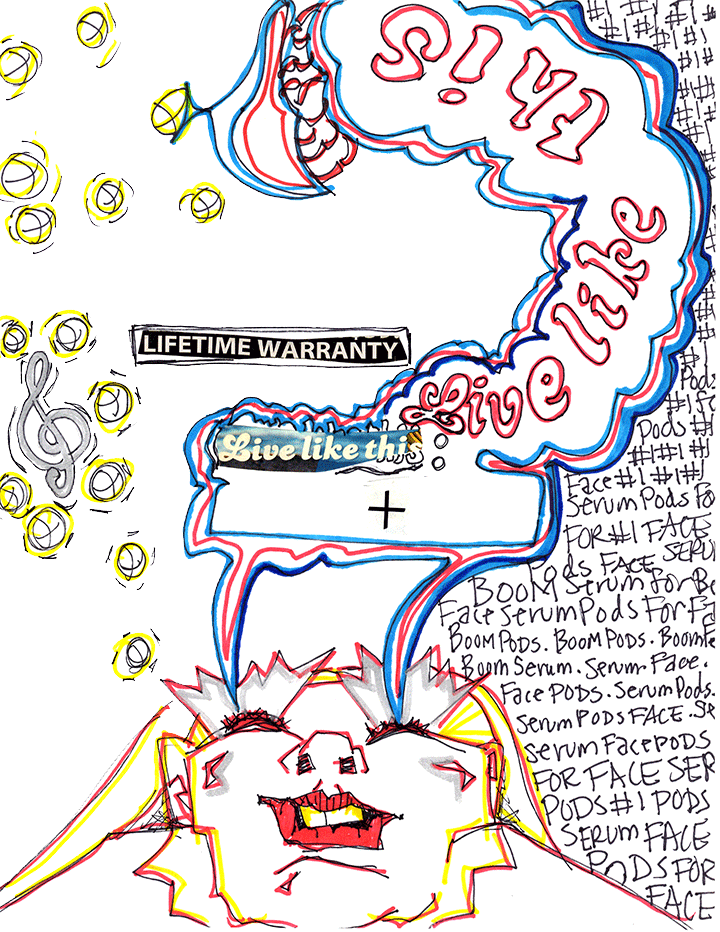 #1 #1
#1#1
#1
Live like this
LIFETIME WARRANTY
Live like this
+
Pods
Pods #1
#1#1#1
Face #1 #1#1
Serum Pods Fo
FOR #1 FACE
SERU
Pods FACE
BOOM Serum for Bo
Face Serum Pods For Fa
BOOM PODS. BOOM PODS. Boom
Boom Serum. Serum. Face.
Face PODS. Serum Pods.
Serum PODS FACE. Se
Serum Face PODS
FOR FACE SER
PODS #1 PODS
SERUM FACE
PODS FOR
FACE